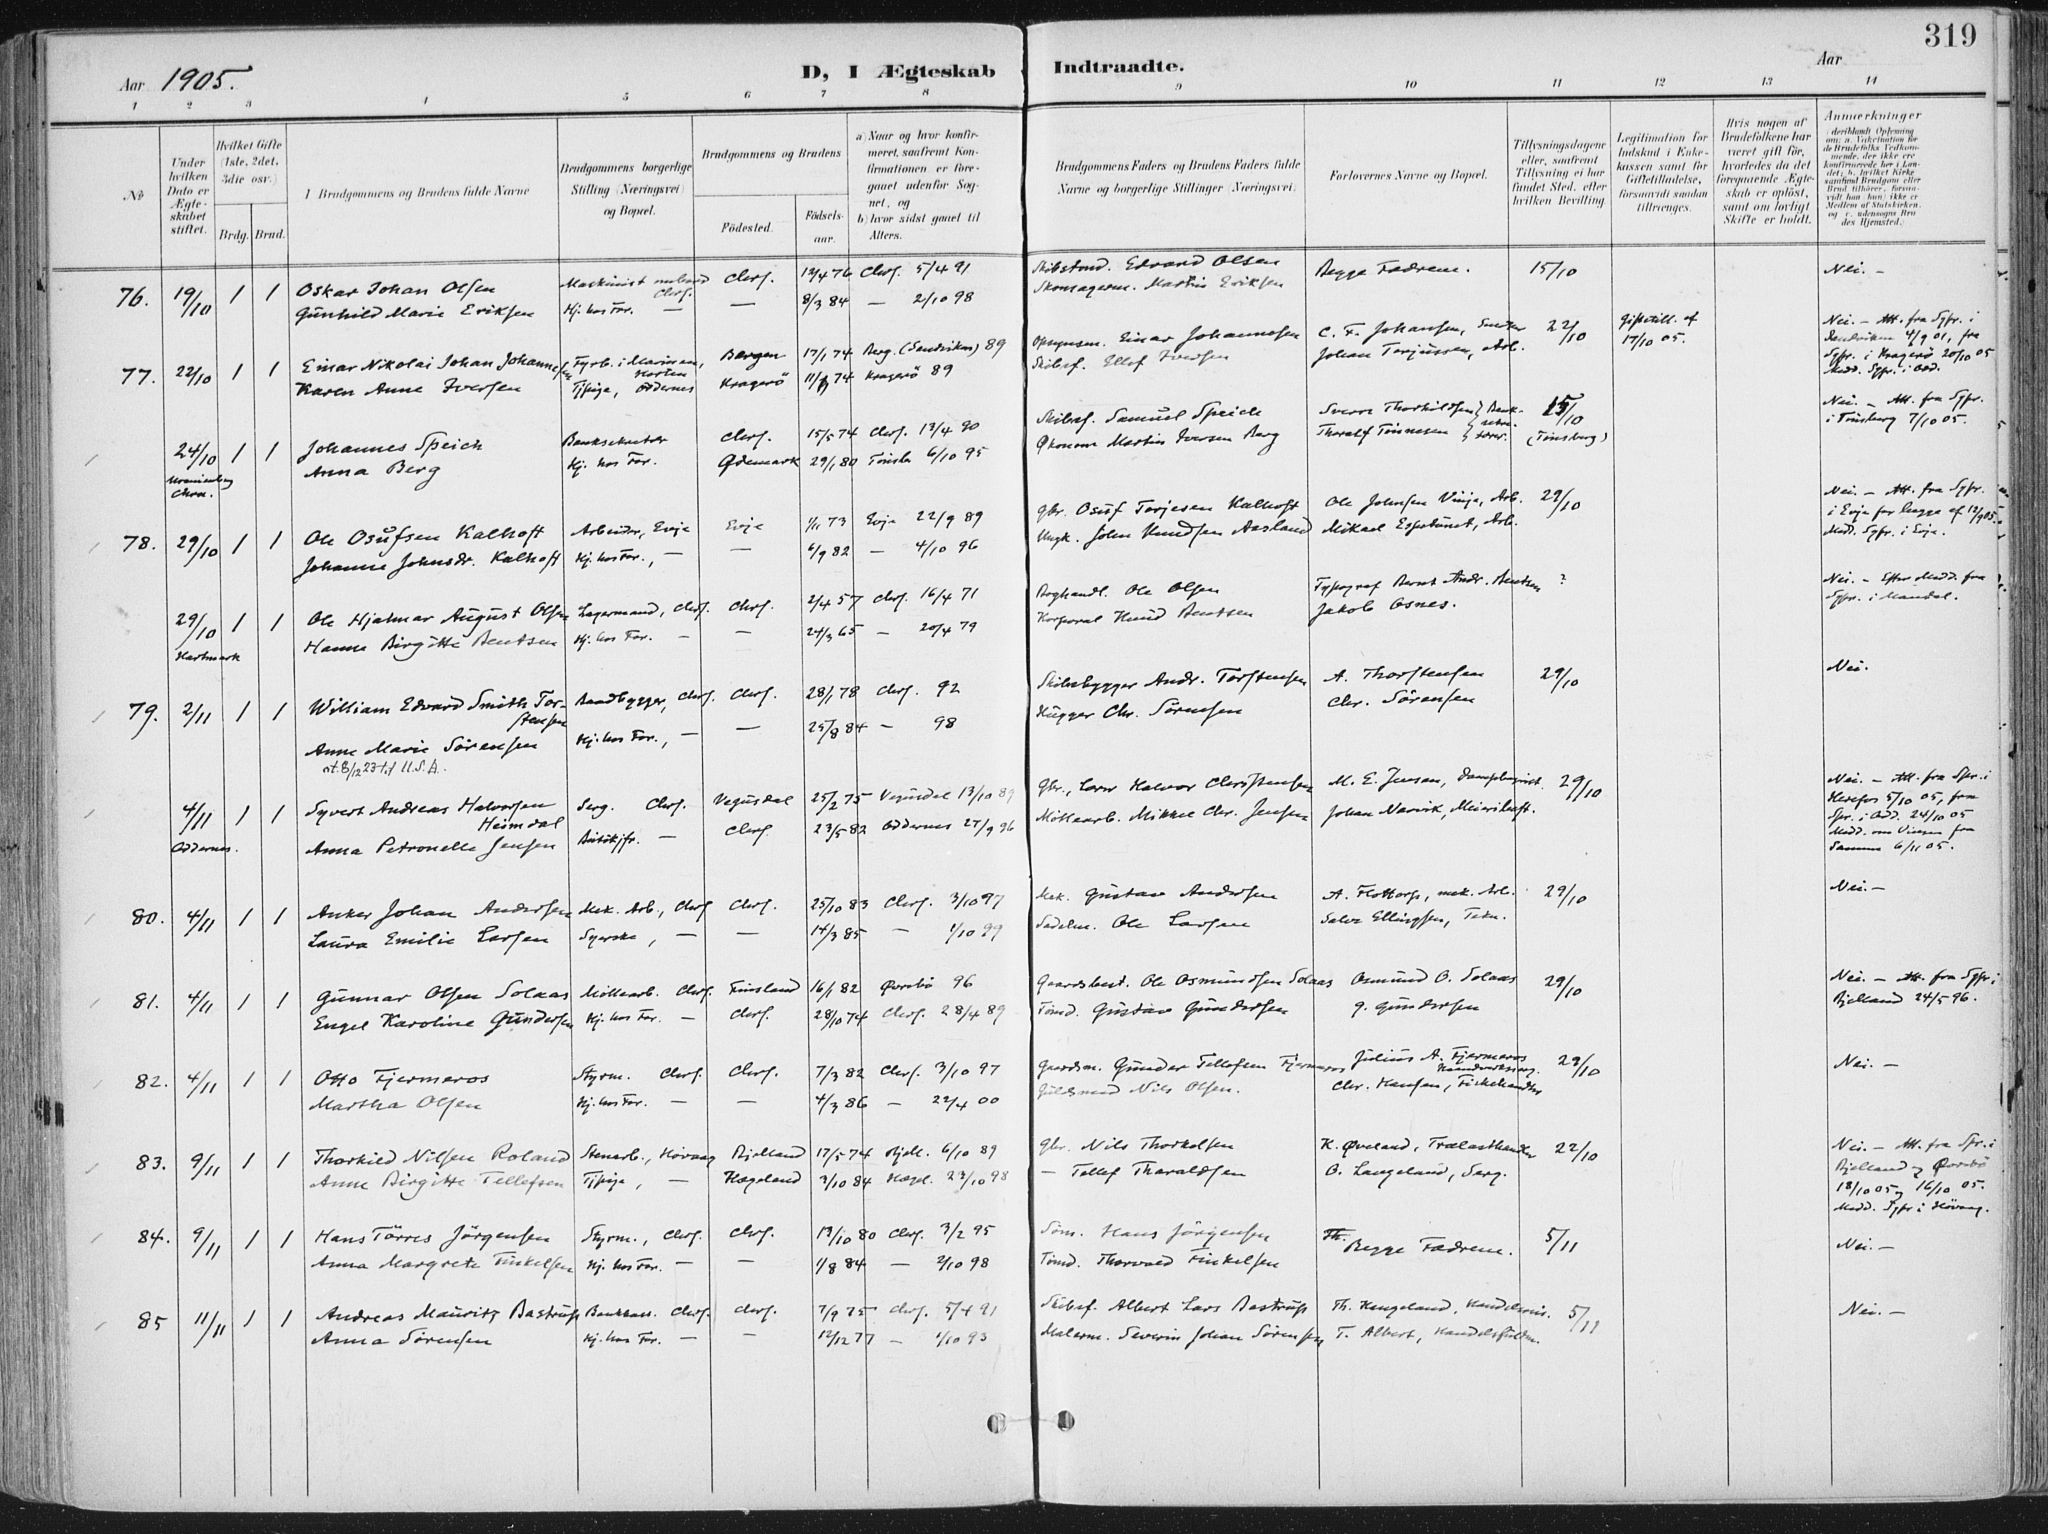 319
Aar 1905.
D, I Ægteskab Indtraadte.
Aar
1 2 3 4 5 6 7 8 9 10 11 12 13 14
No
Under hvilken Dato er Ægteskabet stiftet.
Hvilket Gifte (1ste, 2det, 3die osv.)
Brdg. Brud.
Brudgommens og Brudens fulde Navne
Brudgommens borgerlige Stilling (Næringsvei) og Bopæl.
Brudgommens og Brudens
Fødested.
Fødselsaar.
a) Naar og hvor konfirmeret, saafremt Konfirmationen er foregaaet udenfor Sognet, og
b) hvor sidst gaaet til Alters.
Brudgommens Faders og Brudens Faders fulde Navne og borgerlige Stillinger (Næringsvei)
Forlovernes Navne og Bopæl.
Tillysningsdagene eller, saafremt Tillysning ei har fundet Sted, efter hvilken Bevilling.
Legitimation for Indskud i Enkekassen samt for Giftetilladelse, forsaavidt saadan tiltrænges.
Hvis nogen af Brudefolkene har været gift før, hvorledes da det foregaaende Ægteskab er opløst, samt om lovligt Skifte er holdt.
Anmærkninger
76. 19/10 1 1 Oskar Johan Olsen Maskinist Chrs. 12/4 76 Chrs. 5/4 91 Edvard Olsen Begge Fædrene. 15/10 Nei. –
Gunhild Marie Eriksen Hj. hos Far. — 8/3 84 — 2/10 98 Martin Eriksen
77. 22/10 1 1 Einar Nikolai Johan Johannesen Fyrb. i Marinen, Horten Bergen 17/1 74 Berg. (Sandviken) 89 Opsynsm. Einar Johannesen C. F. Johansen, 22/10 Giftetill. af 17/10 05. Nei. – Att. fra Sgpr. i Sandviken 4/9 01, fra Sgpr. i Kragerö 20/10 05
Karen Anne Iversen Tjpige, Oddernes Kragerö 74 Kragerö 89 Skibsf. Ellef Iversen Johan Terjussen, Arb. Medd. Sgpr. i Odd.
24/10 1 1 Johannes Speich Banksekretær Chrs. 15/5 74 Chrs. 13/4 90 Skibsf. Samuel Speich Sverre Thorkildsen 15/10 Nei – Att. fra Sgpr. i Tönsberg 7/10 05.
Anna Berg Hj. hos Far. Ødemark 29/1 80 Tönsb. 6/10 95 Økonom Martin Iversen Berg Thoralf Tönnesen (Tönsberg)
Uranienborg Chra.
78. 29/10 1 1 Ole Osufsen Kalhoft Arbeider, Evje Evje 1/11 73 Evje 22/9 89 Gbr. Osuf Terjesen Kalhoft Ole Johnsen Vinje, Arb. 29/10 Nei. – Att. fra Sgpr. i Evje for begge af 12/9 05. Medd. Sgpr. i Evje.
Johanne Johnsdr. Kalhoft Hj. hos Far., — — 6/9 82 — 4/10 96 John Knudsen Aasland Mikael Espetunet, Arb.
29/10 1 1 Ole Hjalmar August Olsen Lagermand, Chrs. Chrs. 2/4 57 Chrs. 16/4 71 Boghandl. Ole Olsen Typograf Bernt Andr. Bentsen ? Nei. – Efter Medd. fra Sgpr. i Mandal.
Hanne Birgitte Bentsen Hj. hos Far. — — 24/3 65 — 20/4 79 Korporal Knud Bentsen Jakob Osnes.
79. 2/11 1 1 William Edvard Smith Torstensen Baadbygger, Chrs. Chrs. 28/1 78 Chrs. 92 Skibsbygger Andr. Torstensen A. Thorstensen 29/10 Nei.
Anne Marie Sörensen Hj. hos Far., — — 25/8 84 — 98 Hugger Chr. Sörensen Chr. Sörensen
ut. 8/12 23 til U.S.A.
4/11 1 1 Syvert Andreas Halvorsen Heimdal Serg. Chrs. Vegusdal 25/2 75 Vegusdal 13/10 89 Gbr., Halvor Christensen M. E. Jensen, 29/10 Nei. – Att. fra Spr. i Herefos 5/10 05, fra Spr. i Odd. 24/10 05
Oddernes. Anna Petronelle Jensen Butikjfr. — Chrs. 23/5 82 Oddernes 27/9 96 Möllearb. Mikkel Chr. Jensen Johan Narvik, Medd. om Vielsen fra Samme 6/11 05.
80. 4/11 1 1 Anker Johan Andersen Mek. Arb., Chrs. Chrs. 25/10 83 Chrs. 3/10 97 Mek. Gustav Andersen A. Flottorp, mek. Arb. 29/10 Nei. –
Laura Emilie Larsen Syerske, — — 14/3 85 — 1/10 99 Sadelm. Ole Larsen Salve Ellingsen,
81. 4/11 1 1 Gunnar Olsen Solaas Möllearb. Chrs. Finsland 16/1 82 Øvrebö 96 Gaardsbest. Ole Osmundsen Solaas Osmund O. Solaas 29/10 Nei. – Att. fra Sgpr. i Bjelland 24/5 96.
Engel Karoline Gundersen Hj. hos Far. — Chrs. 28/10 74 Chrs. 28/4 89 Tömd. Gustav Gundersen G. Gundersen
82. 4/11 1 1 Otto Fjermeros Styrm. Chrs. Chrs. 7/3 82 Chrs. 3/10 97 Gaardsm. Gunder Tellefsen Fjermeros Julius A. Fjermeros 29/10 Nei. –
Martha Olsen Hj. hos Far. — — 4/3 86 — 22/4 00 Guldsmed Nils Olsen. Chr. Hansen, Fiskehandler
83. 9/11 1 1 Thorkild Nilsen Roland Stenarb., Hövaag Bjelland 17/5 74 Bjell. 6/10 89 Gbr. Nils Thorkelsen K. Øveland, Trælasthandler 22/10 Nei. – Att. fra Spr. i Bjelland og Øvrebö 18/10 05 og 16/10 05.
Anne Birgitte Tellefsen Tjpige, — Hægeland 3/10 84 Hægel. 23/10 98 — Tellef Tharaldsen O. Langeland, Serg. Medd. Sgpr. i Hövaag.
84. 9/11 1 1 Hans Törres Jörgensen Styrm., Chrs. Chrs. 13/10 80 Chrs. 3/2 95 Söm. Hans Jörgensen Begge Fædrene. 5/11 Nei. –
Anna Margrete Finkelsen Hj. hos Far. — — 1/8 84 — 2/10 98 Tömd. Thorvald Finkelsen
85 11/11 1 1 Andreas Mauritz Bastrup Chrs. Chrs. 7/9 75 Chrs. 5/4 91 Skibsf. Albert Lars Bastrup Th. Haugeland, 5/11 Nei. –
Anna Sörensen Hj. hos Far. — — 12/12 77 — 1/10 93 Malerm. Severin Johan Sörensen T. Albert, Handelsfuldm.